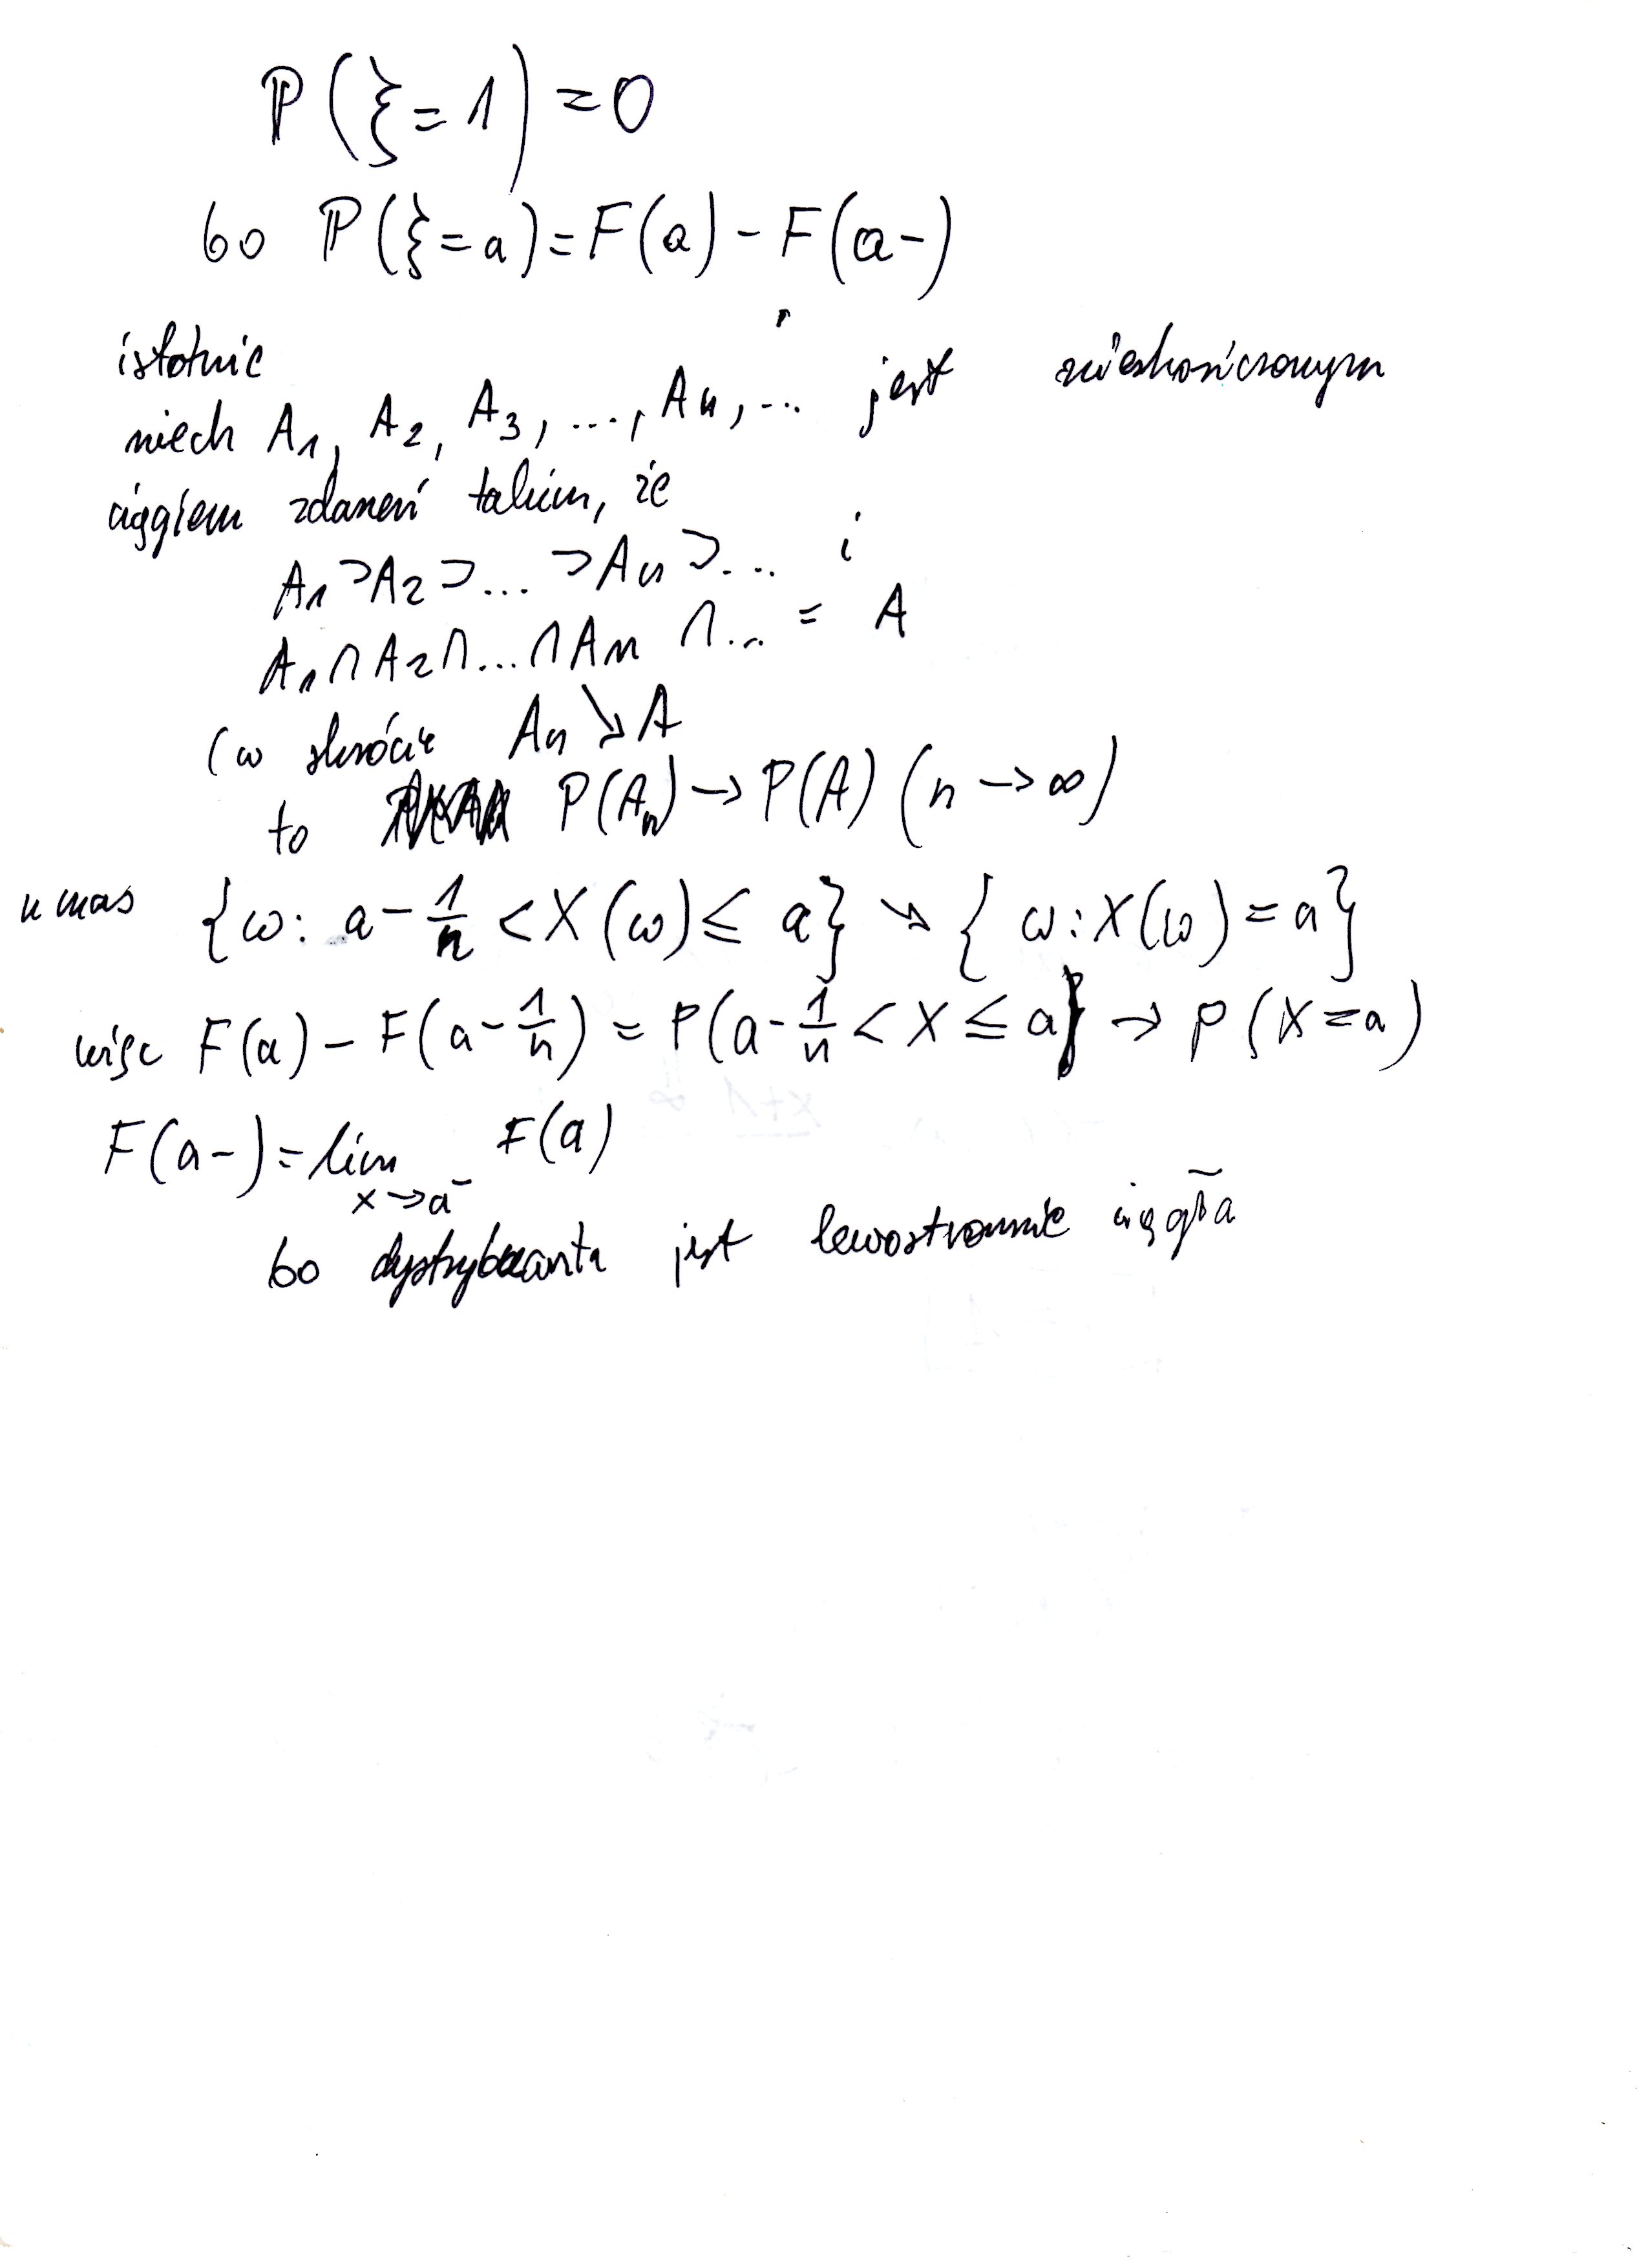 ℙ(ξ=1)=0
bo ℙ(ξ=a)=F(a)-F(a-)
istotnie
niech A₁, A₂, A₃, ..., Aₙ, ... jest nieskończonym
ciągiem zdarzeń takim, że
A₁⊃A₂⊃...⊃Aₙ⊃... i
A₁∩A₂∩...∩Aₙ∩... = A
(w skrócie Aₙ↘A
to P(Aₙ)→P(A) (n→∞)
u nas {ω: a-1/n <X(ω)≤ a} ↘ { ω:X(ω)=a}
więc F(a)-F(a-1/n) = P(a-1/n < X ≤ a) → P(X=a)
F(a-)=lim F(a)
x→a⁻
bo dystrybuanta jest lewostronnie ciągła